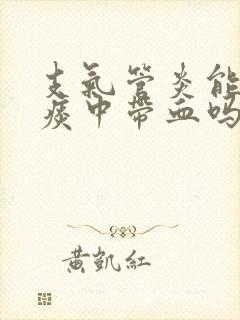 支氣管炎能
痰中帶血吗
黃凱紅